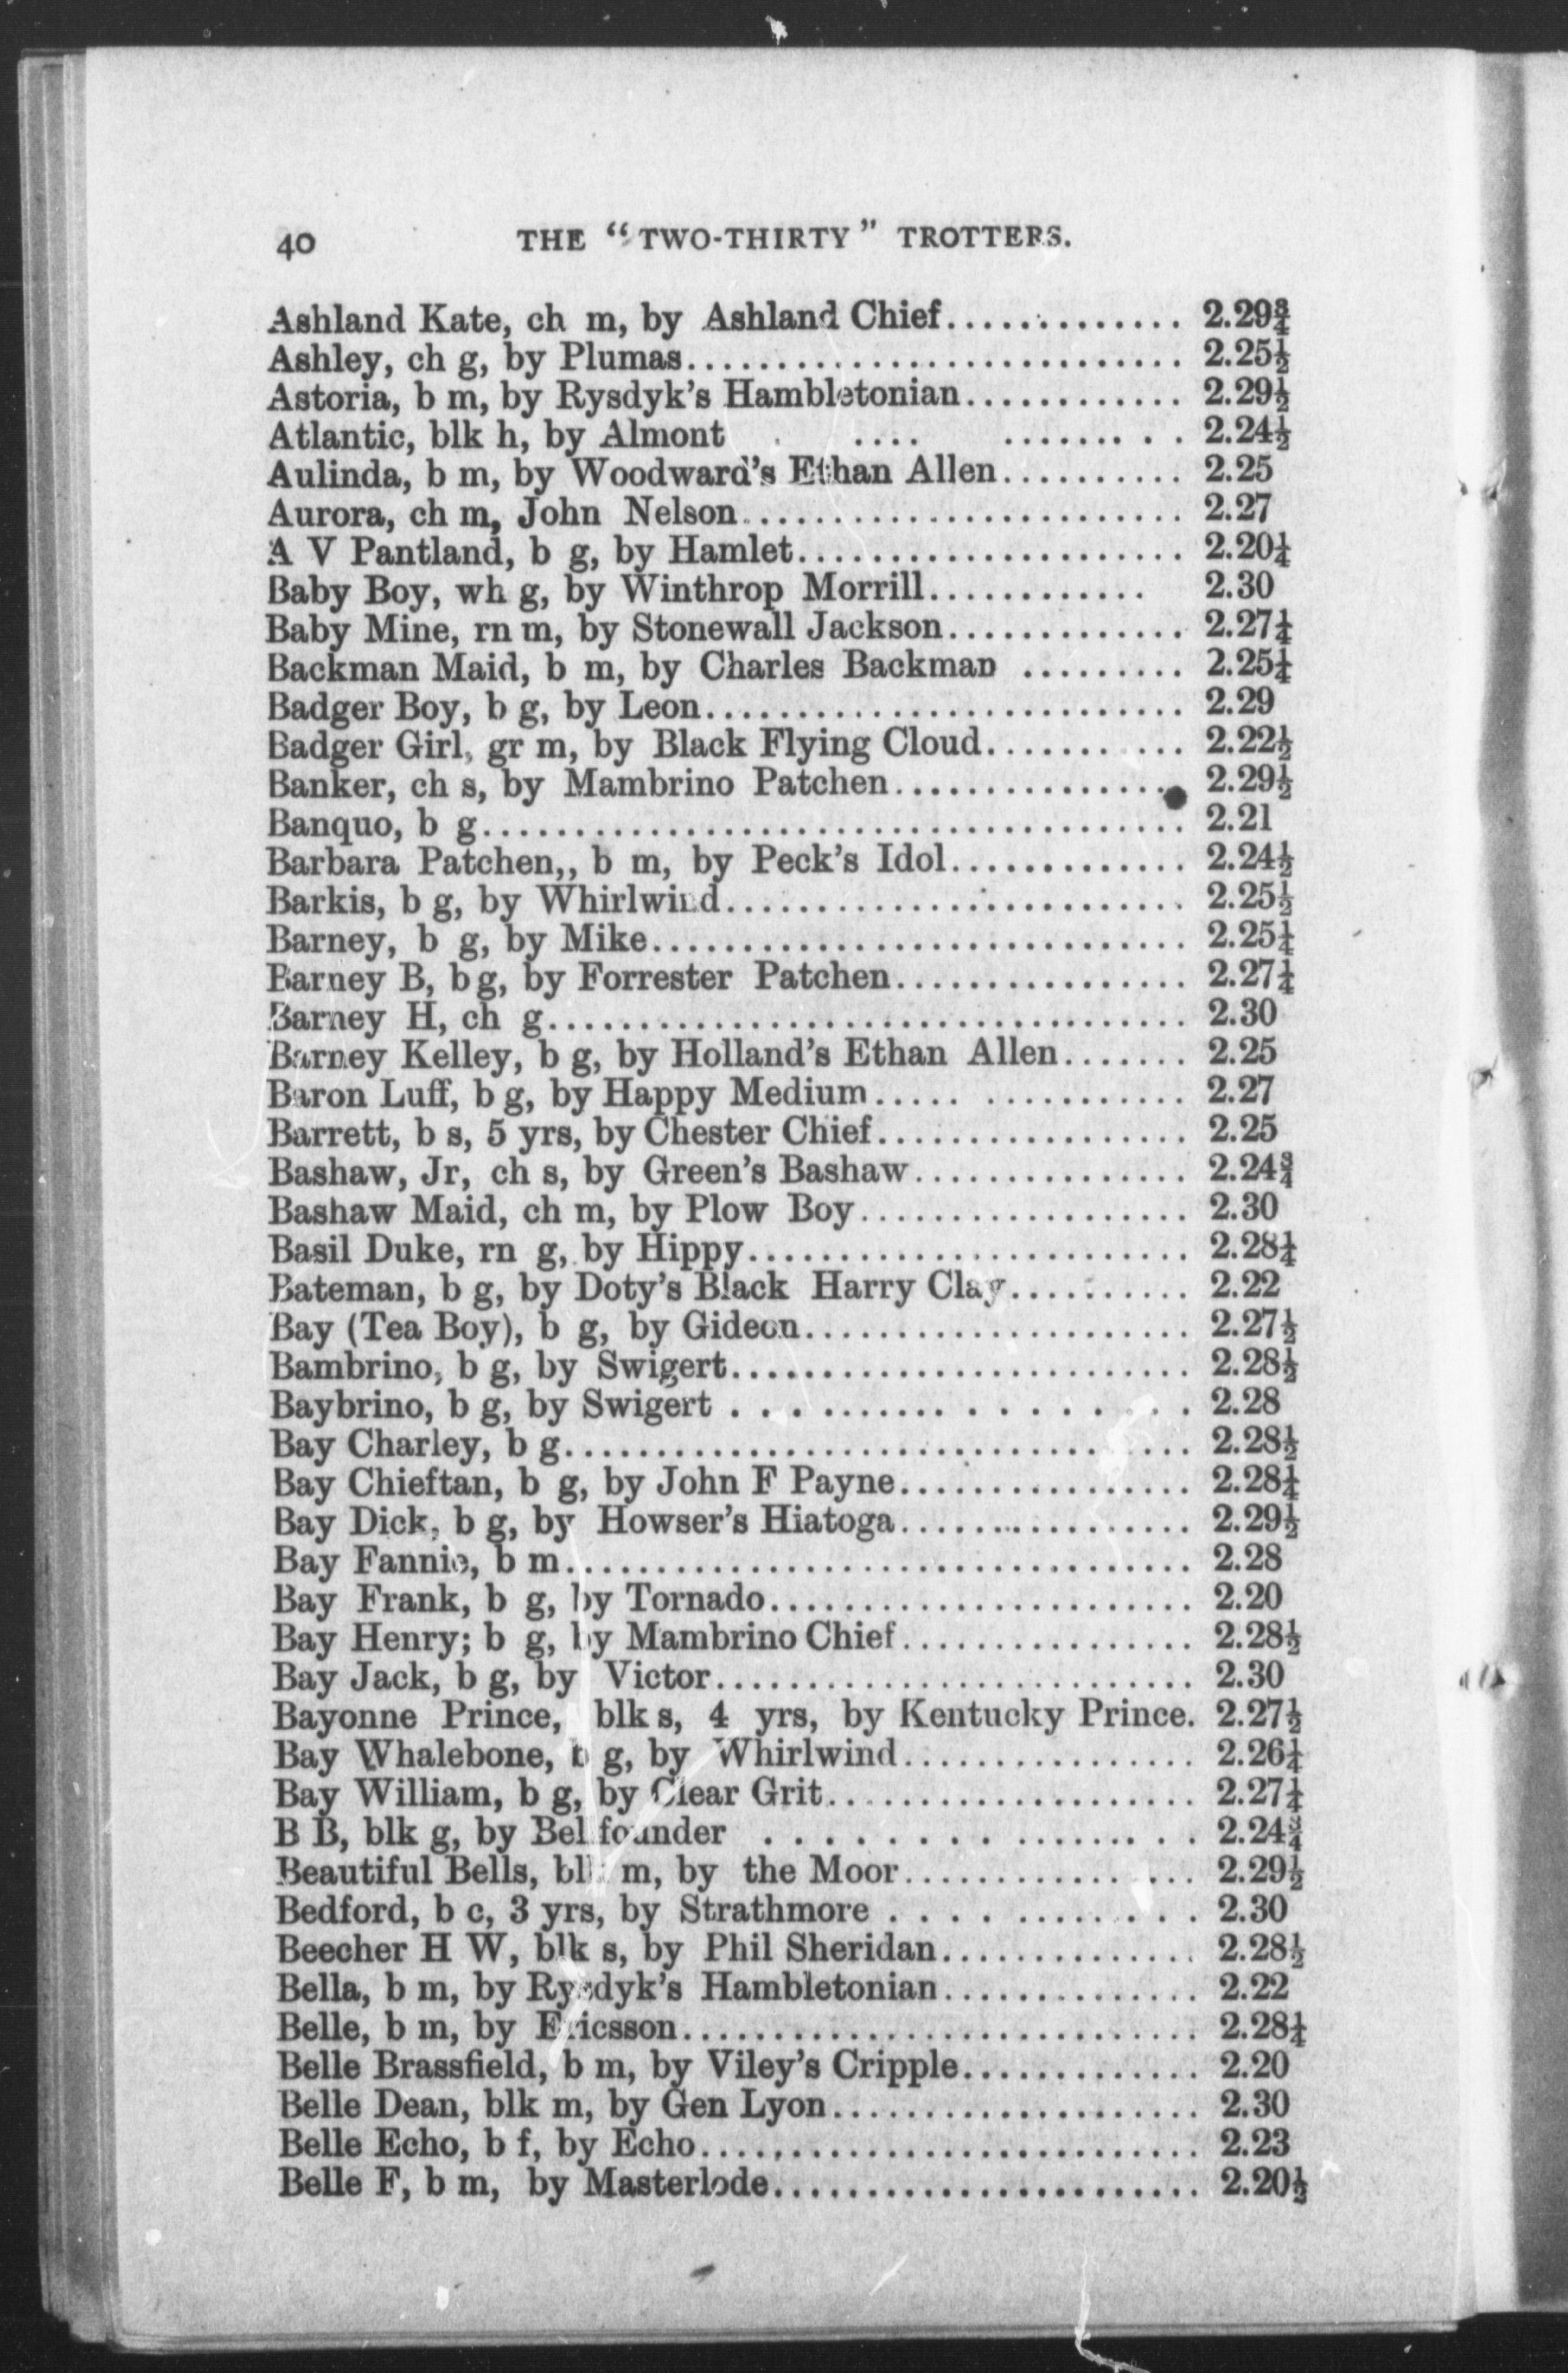 40 THE “TWO-THIRTY” TROTTERS.
Ashland Kate, ch m, by Ashland Chief............. 2.29¾
Ashley, ch g, by Plumas........................... 2.25½
Astoria, b m, by Rysdyk’s Hambletonian............ 2.29½
Atlantic, blk h, by Almont .... ......... 2.24½
Aulinda, b m, by Woodward’s Ethan Allen.......... 2.25
Aurora, ch m, John Nelson......................... 2.27
A V Pantland, b g, by Hamlet...................... 2.20¼
Baby Boy, wh g, by Winthrop Morrill............ 2.30
Baby Mine, rn m, by Stonewall Jackson............. 2.27¼
Backman Maid, b m, by Charles Backman ......... 2.25¼
Badger Boy, b g, by Leon........................... 2.29
Badger Girl, gr m, by Black Flying Cloud........... 2.22½
Banker, ch s, by Mambrino Patchen................ 2.29½
Banquo, b g....................................... 2.21
Barbara Patchen,, b m, by Peck’s Idol............. 2.24½
Barkis, b g, by Whirlwind......................... 2.25½
Barney, b g, by Mike.............................. 2.25¼
Barney B, b g, by Forrester Patchen................ 2.27¼
Barney H, ch g.................................... 2.30
Barney Kelley, b g, by Holland’s Ethan Allen....... 2.25
Baron Luff, b g, by Happy Medium..... ........... 2.27
Barrett, b s, 5 yrs, by Chester Chief................. 2.25
Bashaw, Jr, ch s, by Green’s Bashaw............... 2.24¾
Bashaw Maid, ch m, by Plow Boy.................. 2.30
Basil Duke, rn g, by Hippy........................ 2.28¼
Bateman, b g, by Doty’s Black Harry Clay.......... 2.22
Bay (Tea Boy), b g, by Gideon..................... 2.27½
Bambrino, b g, by Swigert......................... 2.28½
Baybrino, b g, by Swigert .................. 2.28
Bay Charley, b g.................................. 2.28½
Bay Chieftan, b g, by John F Payne................ 2.28¼
Bay Dick, b g, by Howser’s Hiatoga................ 2.29½
Bay Fannie, b m................................... 2.28
Bay Frank, b g, by Tornado....................... 2.20
Bay Henry; b g, by Mambrino Chief................ 2.28½
Bay Jack, b g, by Victor.......................... 2.30
Bayonne Prince, blk s, 4 yrs, by Kentucky Prince. 2.27½
Bay Whalebone, b g, by Whirlwind................ 2.26¼
Bay William, b g, by Clear Grit.................... 2.27¼
B B, blk g, by Bellfounder ................ 2.24¾
Beautiful Bells, blk m, by the Moor................ 2.29½
Bedford, b c, 3 yrs, by Strathmore ............. 2.30
Beecher H W, blk s, by Phil Sheridan.............. 2.28½
Bella, b m, by Rysdyk’s Hambletonian.............. 2.22
Belle, b m, by Ericsson............................ 2.28¼
Belle Brassfield, b m, by Viley’s Cripple............. 2.20
Belle Dean, blk m, by Gen Lyon.................... 2.30
Belle Echo, b f, by Echo........................... 2.23
Belle F, b m, by Masterlode....................... 2.20½